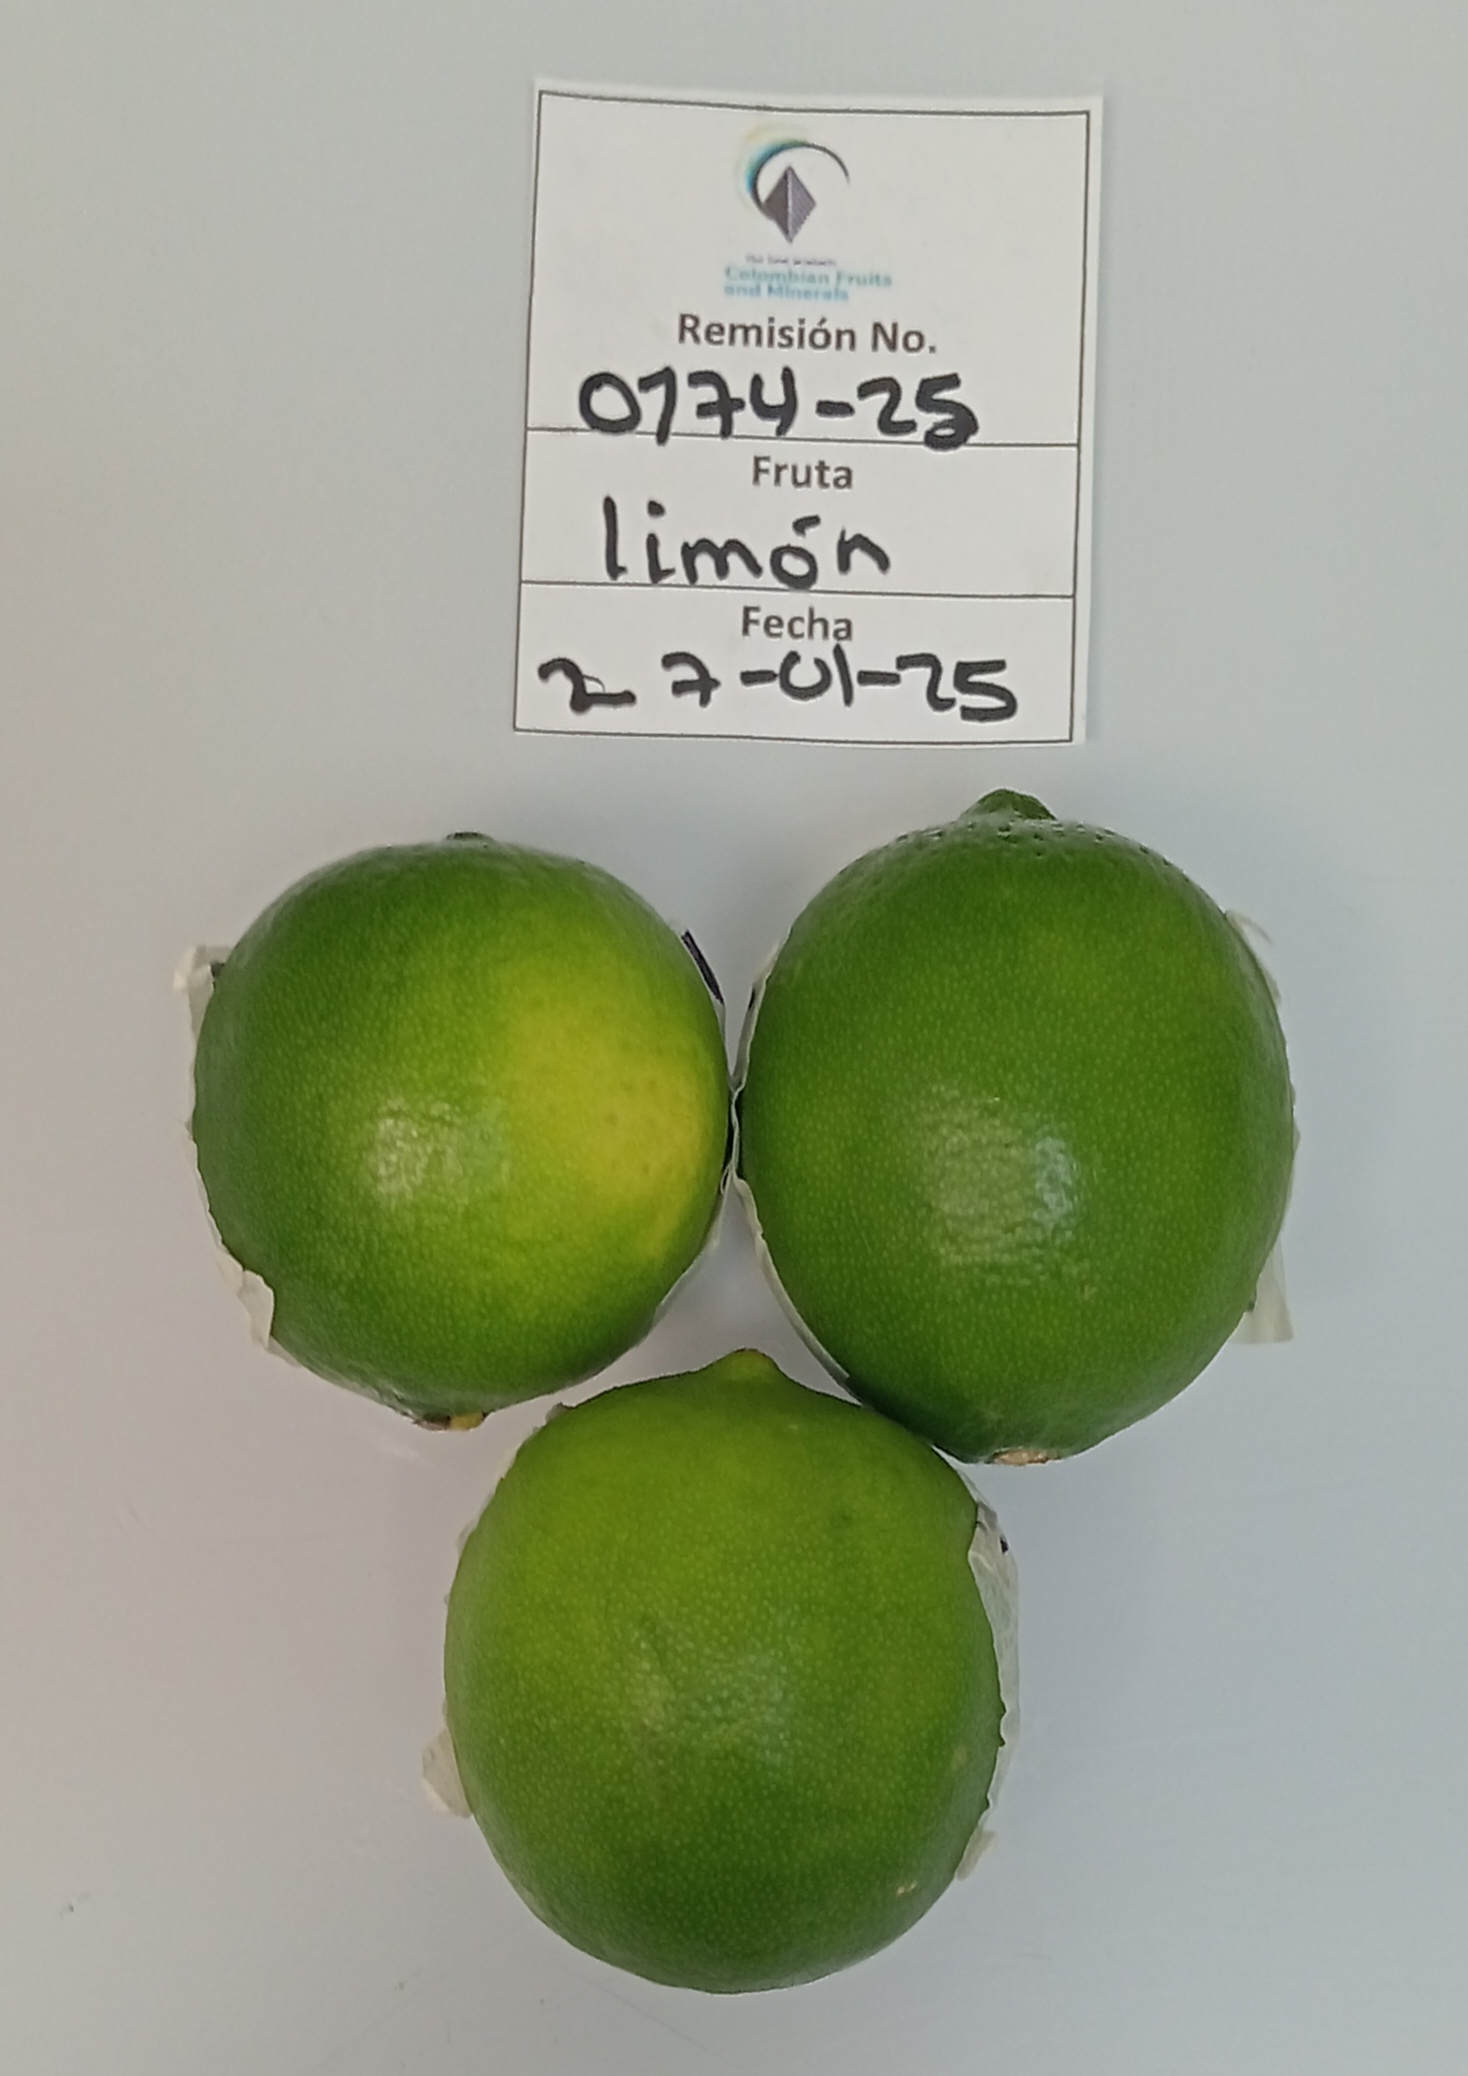 Colombian Fruits
and Minerals
Remisión No.
0174-25
Fruta
limón
Fecha
27-01-25